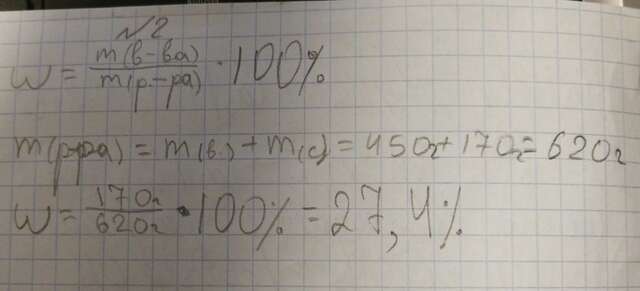 №2
ω = m(в-ва) / m(р-ра) · 100%
m(р-ра) = m(в) + m(с) = 450г + 170г = 620г
ω = 170г / 620г · 100% = 27,4%